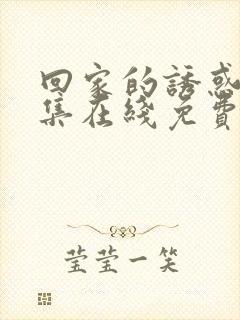 回家的誘惑
集在綫免費
莹莹一笑